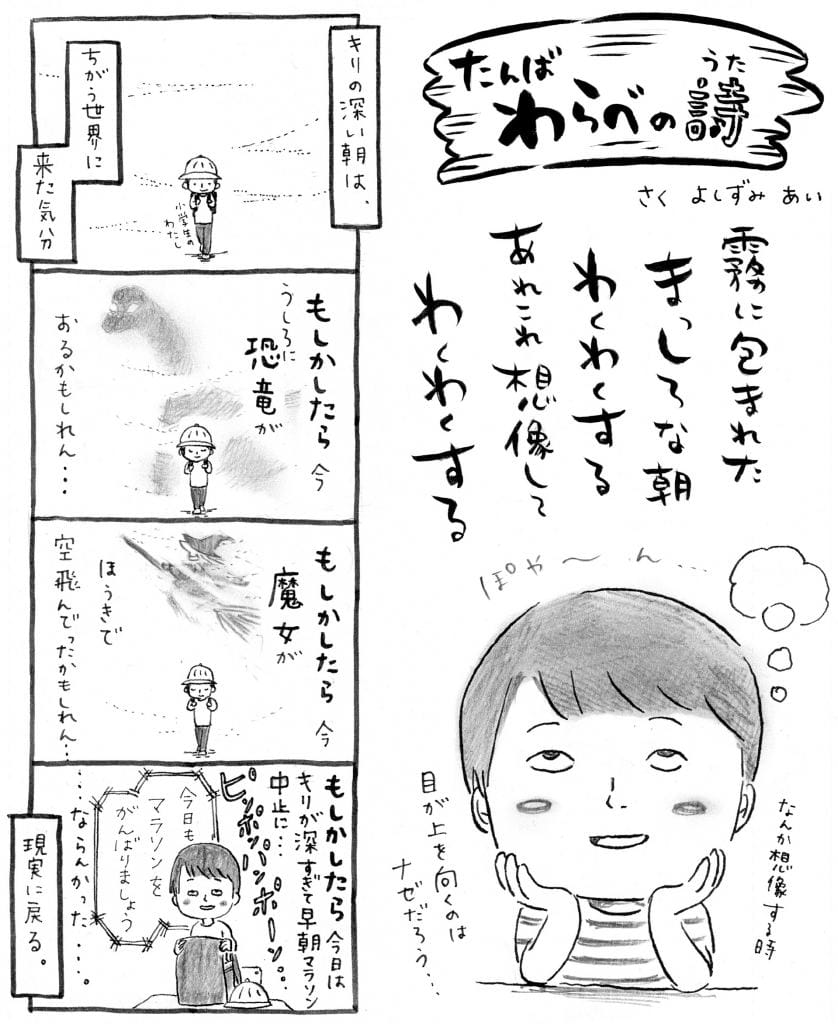 たんば
わらべの詩
うた
さく よしずみ あい
霧に包まれた
まっしろな朝
わくわくする
あれこれ想像して
わくわくする
ぽや〜ん…
なんか想像する時
目が上を向くのは
ナゼだろう…
キリの深い朝は、
ちがう世界に
来た気分
小学生の
わたし
もしかしたら今
うしろに
恐竜が
おるかもしれん…
もしかしたら今
魔女が
ほうきで
空飛んでったかもしれん…
もしかしたら今日は
キリが深すぎて早朝マラソン
中止に…
ピンポンパンポーン…
今日も
マラソンを
がんばりましょう
…ならんかった…。
現実に戻る。